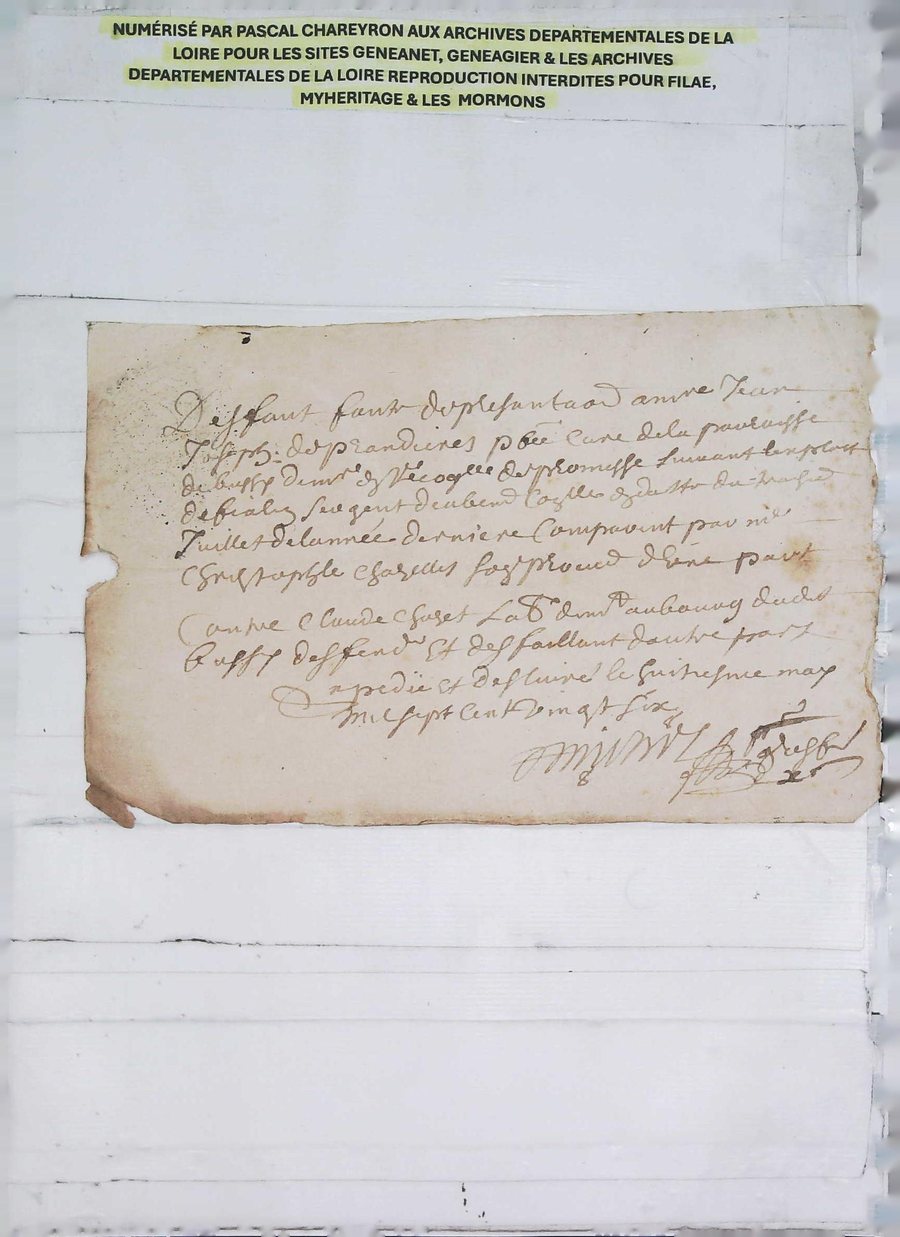 NUMÉRISÉ PAR PASCAL CHAREYRON AUX ARCHIVES DEPARTEMENTALES DE LA
LOIRE POUR LES SITES GENEANET, GENEAGIER & LES ARCHIVES
DEPARTEMENTALES DE LA LOIRE REPRODUCTION INTERDITES POUR FILAE,
MYHERITAGE & LES MORMONS
Deffaut faute de presentaon a mre Jean
Joseph deprandieres pbre Cure de la parroisse
de bussy demr de promesse suivant lexploit
sergent datte du
Juillet de lannée derniere Comparent par me
Christophle Chazelles son procur dune part
Contre Claude Chazet Lab demt au bourg dudit
bussy deffendr Et deffaillant dautre part
Expedié et deslivré le huitiesme may
mil sept cent vingt six